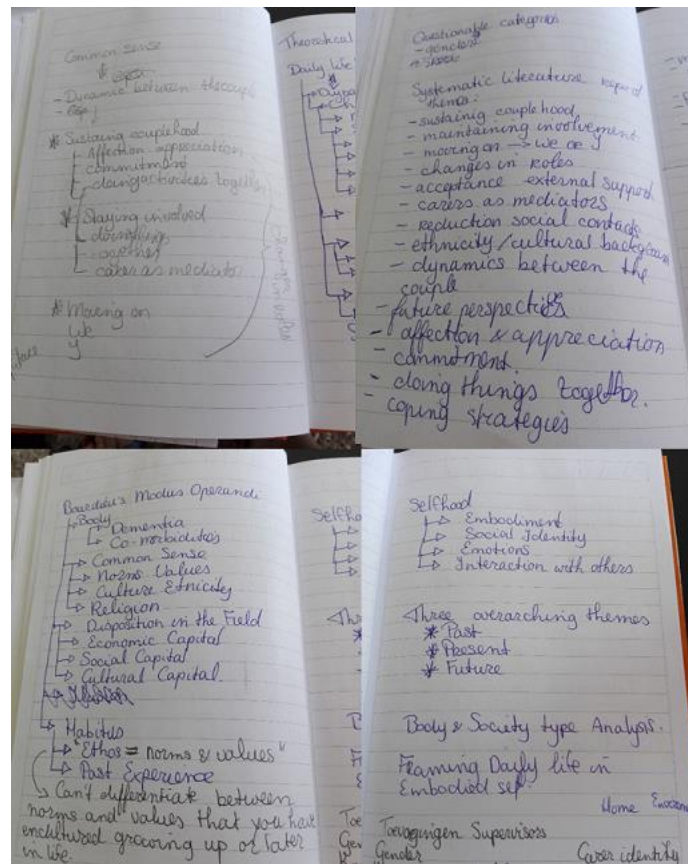 Common sense
- Dynamic between the couple
* Sustaing couplehood
- Affection appreciation
- commitment
- doing activities together
* Staying involved
- doing things
together
- carer as mediator
* Moving on
We
Theoretical
Daily life
Questionable categories
- gender
Systematic literature
themes:
- sustainig couplehood
- maintaining involvement
- moving on → we or
- changes in Roles
- acceptance external support
- carers as mediators
- Reduction social contacts
- ethnicity/cultural background
- dynamics between the
couple
- future perspectives
- affection & appreciation
- commitment.
- doing things together.
- coping strategies
Bourdieu's Modus Operandi
Body
Dementia
Co-morbidities
Common Sense
Norms Values
Culture Etnicity
Religion
Disposition in the Field
Economic Capital
Social Capital
Cultural Capital
Habitus
"Ethos = norms & values"
Past Experience
Can't differentiate between
norms and values that you have
encultured growing up or later
in life.
Selfhood
Embodiment
Social Identity
Emotions
Interaction with others
Three overarching themes
* Past
* Present
* Future
Body & Society type Analysis.
Framing Daily life in
Embodied self.
Home
Toevoegingen Supervisors
Gender
Carer identity